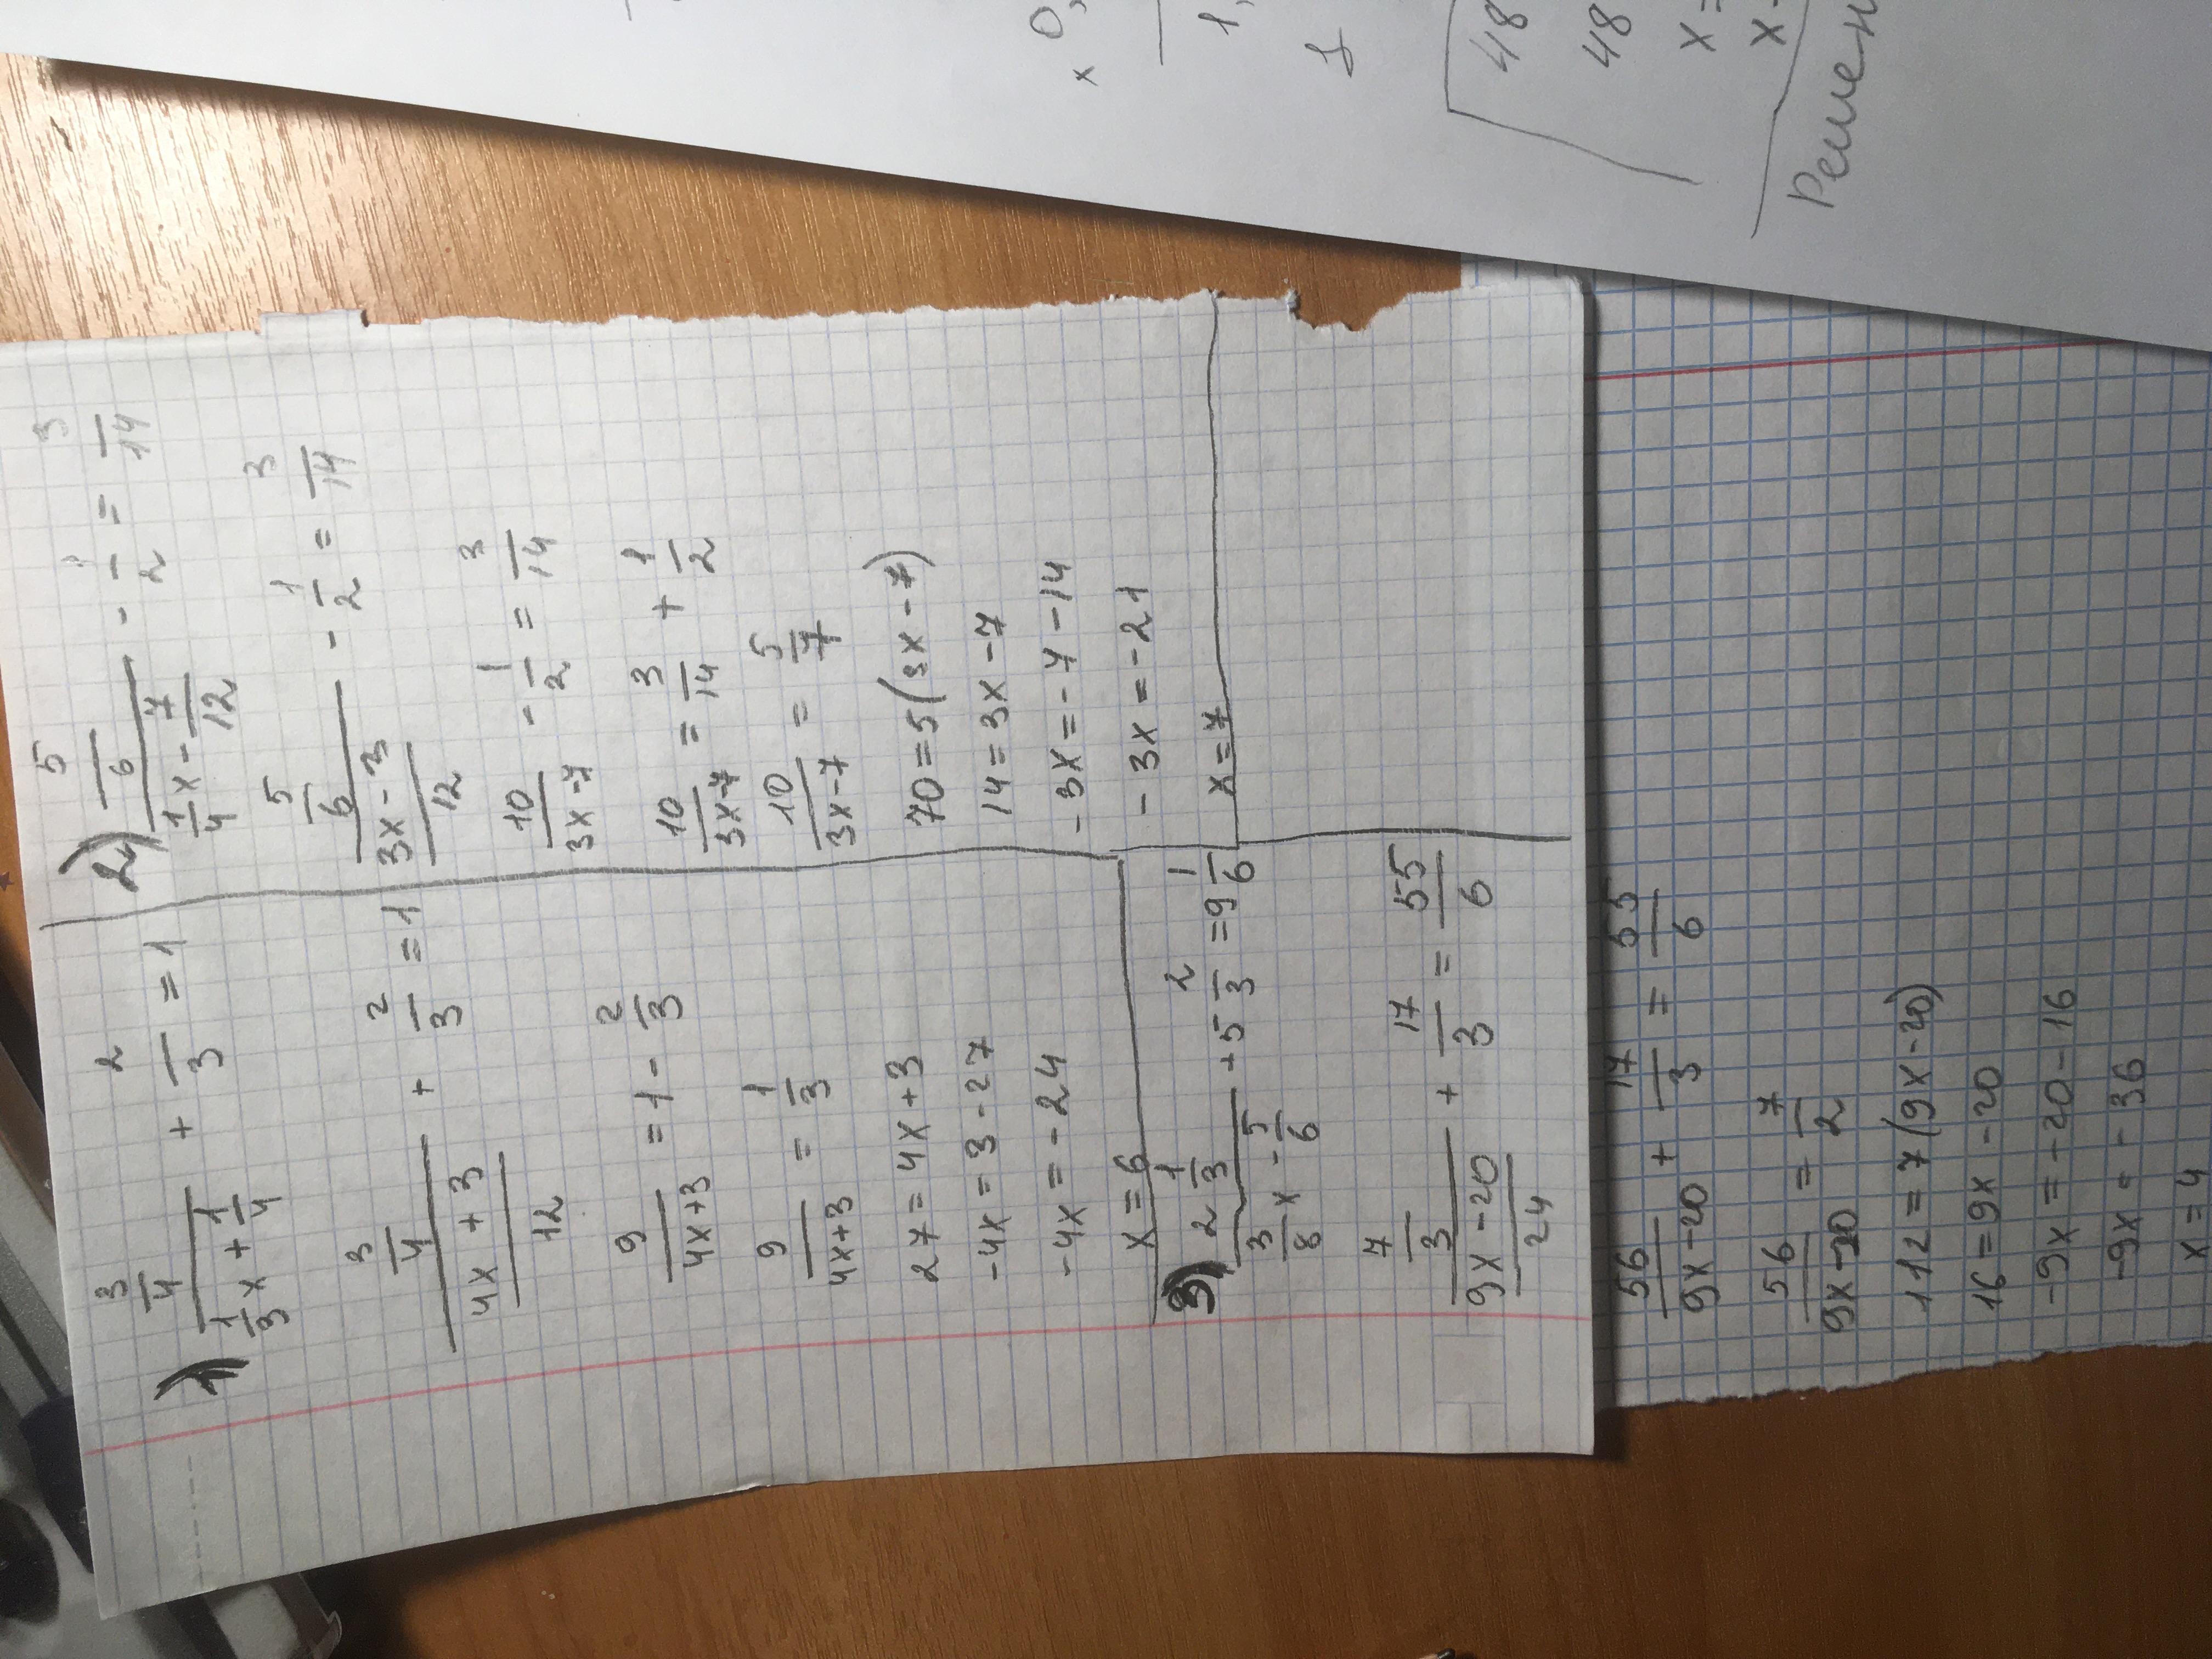 1) (3/4)/(1/3 x + 1/4) + 2/3 = 1
(3/4)/((4x + 3)/12) + 2/3 = 1
9/(4x+3) = 1 - 2/3
9/(4x+3) = 1/3
27 = 4x + 3
-4x = 3 - 27
-4x = -24
x = 6
2) (5/6)/(1/4 x - 7/12) - 1/2 = 3/14
(5/6)/((3x - 3)/12) - 1/2 = 3/14
10/(3x-7) - 1/2 = 3/14
10/(3x-7) = 3/14 + 1/2
10/(3x-7) = 5/7
70 = 5(3x - 7)
14 = 3x - 7
-3x = -7 - 14
-3x = -21
x = 7
3) (2 1/3)/(3/8 x - 5/6) + 5 2/3 = 9 1/6
(7/3)/((9x - 20)/24) + 17/3 = 55/6
56/(9x-20) + 17/3 = 55/6
56/(9x-20) = 7/2
112 = 7(9x - 20)
16 = 9x - 20
-9x = -20 - 16
-9x = -36
x = 4
x 0,
1,
1
48
48
x =
x -